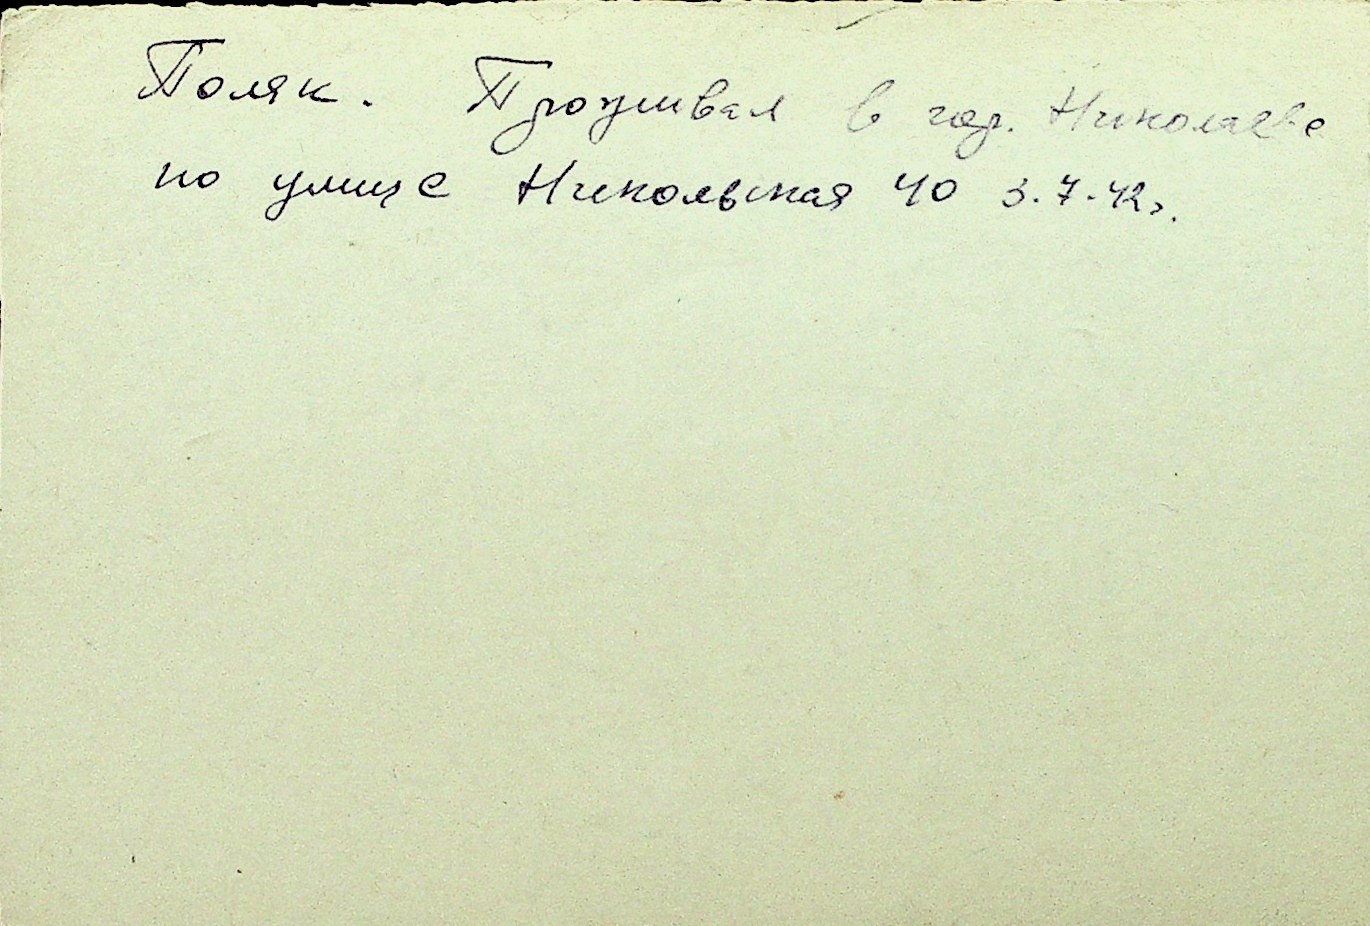 Поляк. Проживал в гор. Николаеве
по улице Никольская 40 3.7.42г.